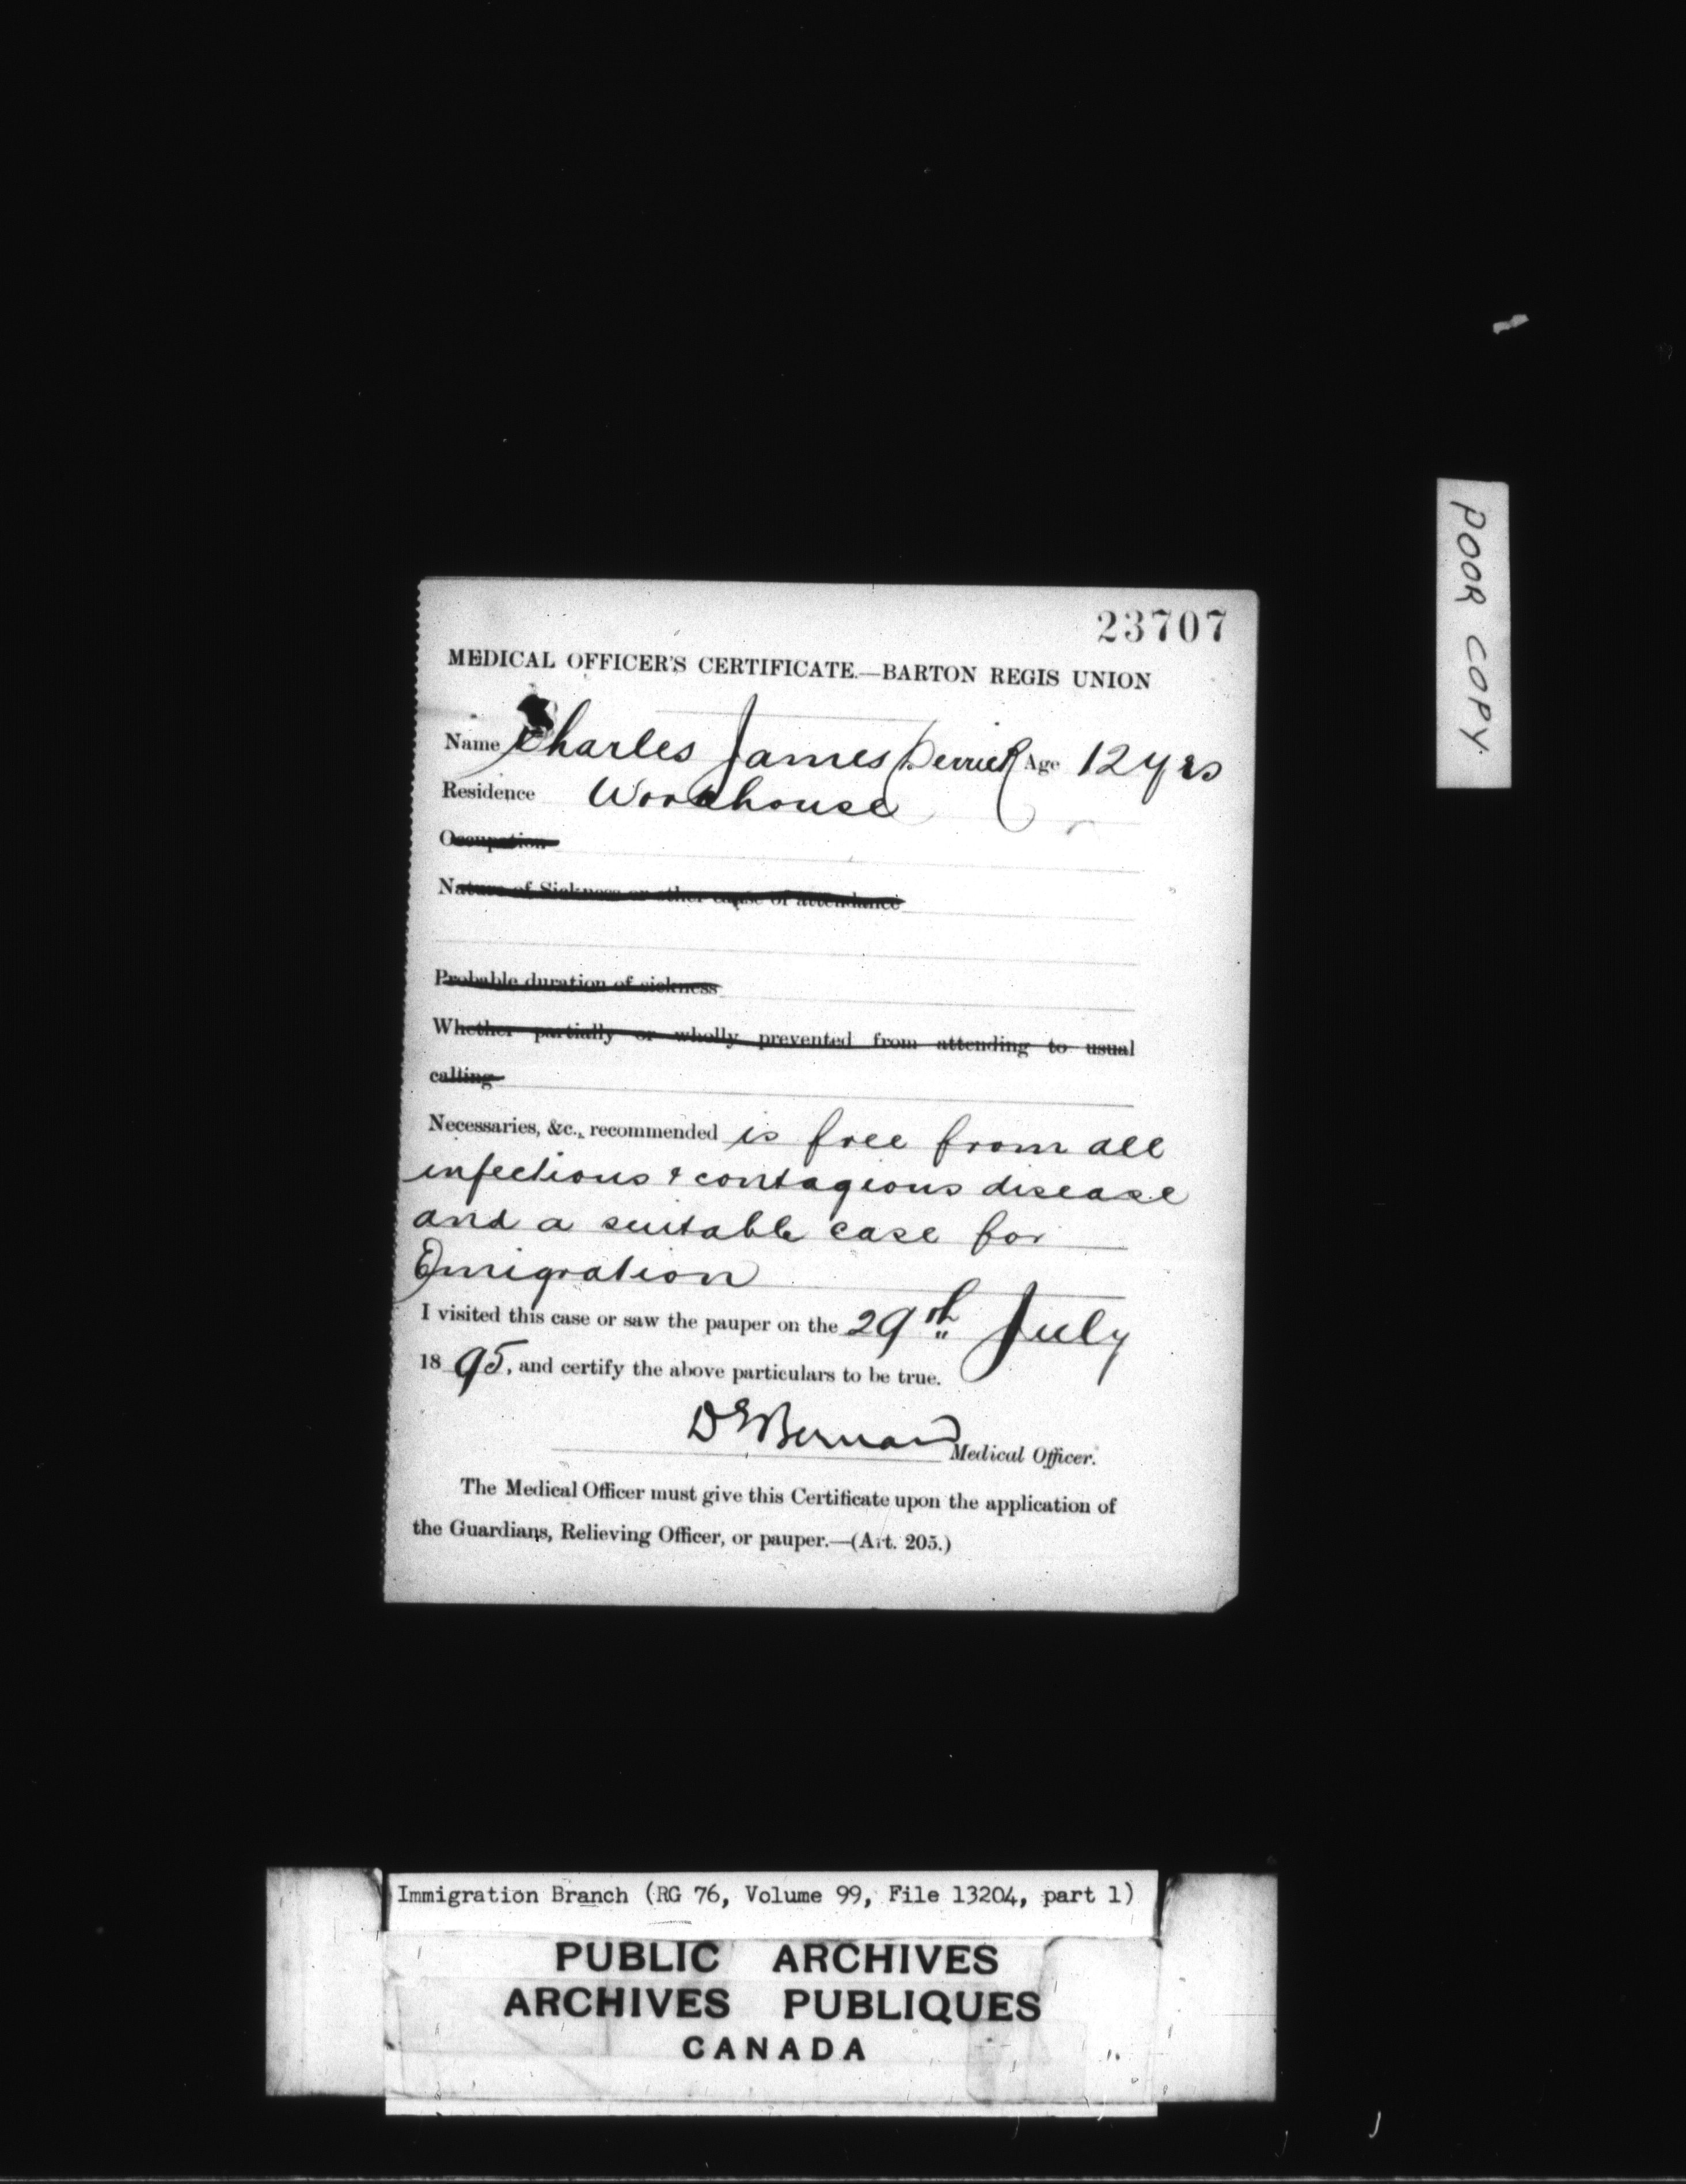 23707
MEDICAL OFFICER'S CERTIFICATE.—BARTON REGIS UNION
Name Charles James Derrick Age 12 yrs
Residence Workhouse
Occupation
Nature of Sickness or other cause of attendance
Probable duration of sickness
Whether partially or wholly prevented from attending to usual
calling
Necessaries, &c., recommended is free from all
infectious & contagious disease
and a suitable case for
Emigration
I visited this case or saw the pauper on the 29th July
1895, and certify the above particulars to be true.
D E Bernard Medical Officer.
The Medical Officer must give this Certificate upon the application of
the Guardians, Relieving Officer, or pauper.—(Art. 205.)
POOR COPY
Immigration Branch (RG 76, Volume 99, File 13204, part 1)
PUBLIC ARCHIVES
ARCHIVES PUBLIQUES
CANADA